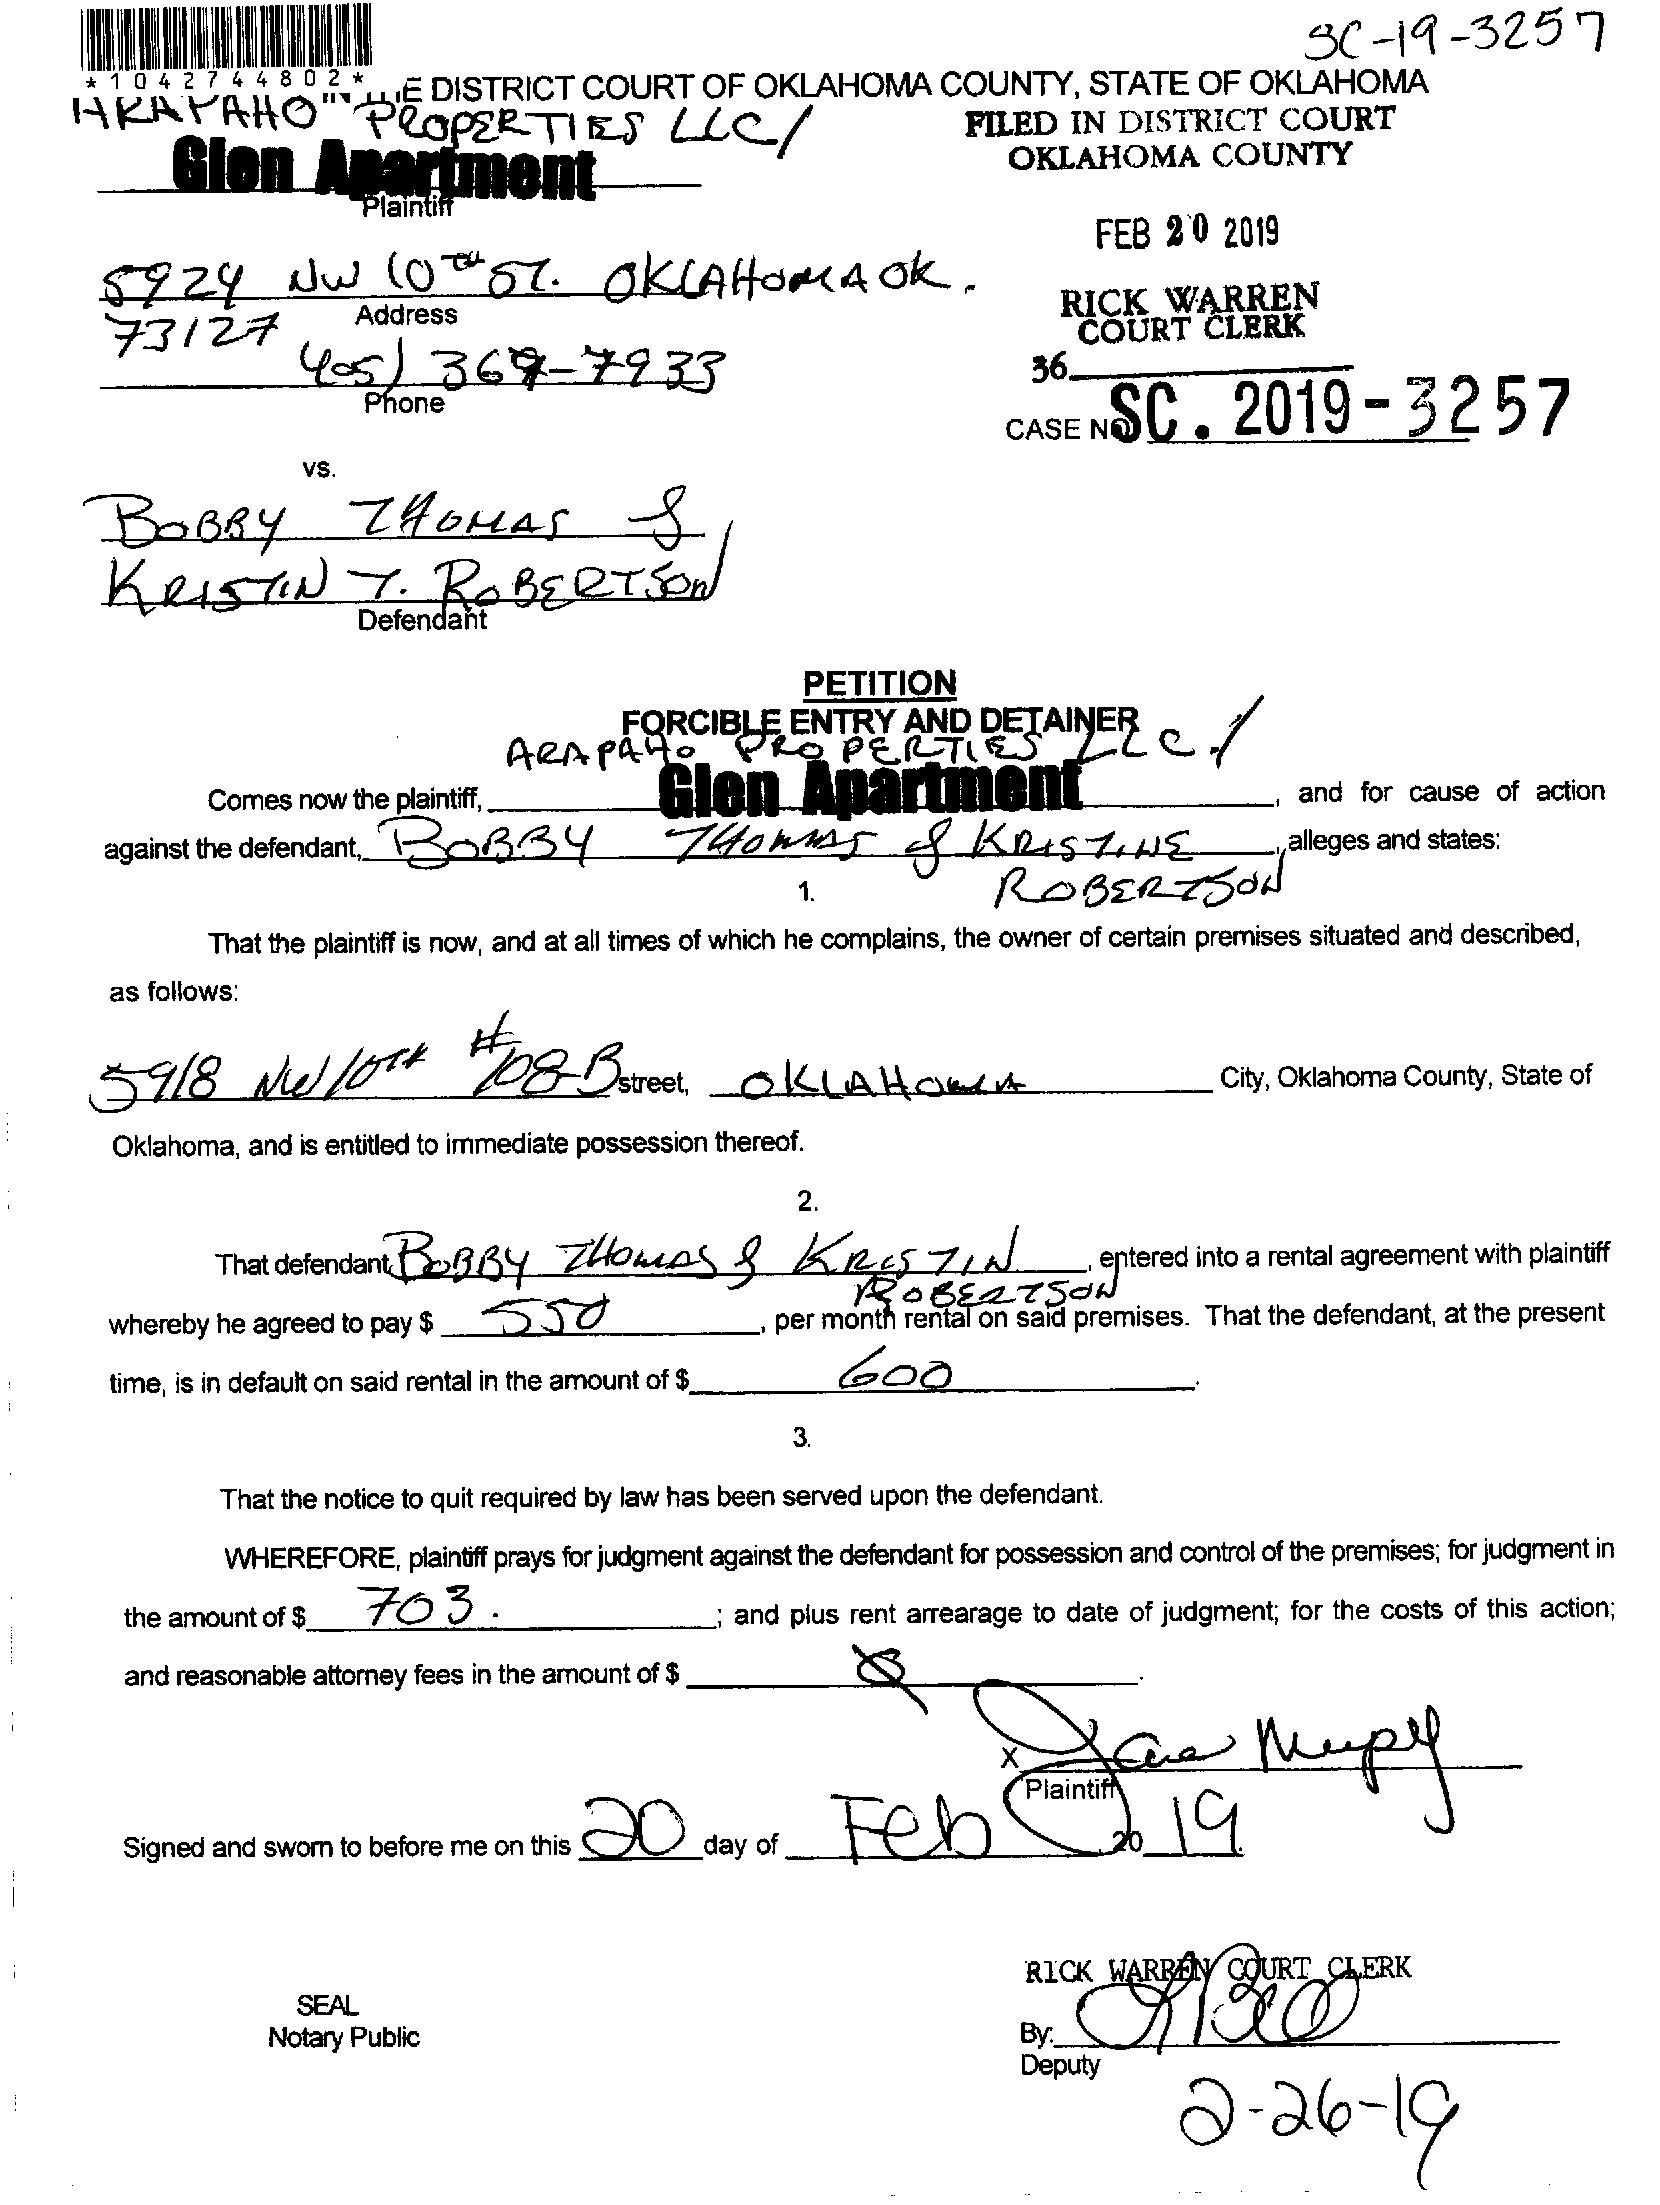 SC-19-3257
*1042744802*
E DISTRICT COURT OF OKLAHOMA COUNTY, STATE OF OKLAHOMA
ARAPAHO PROPERTIES LLC/
FILED IN DISTRICT COURT
OKLAHOMA COUNTY
Glen Apartment
Plaintiff
FEB 20 2019
5924 NW 10TH ST. OKLAHOMA OK.
Address
73127
RICK WARREN
COURT CLERK
405) 369-7933
Phone
36
CASE NO SC. 2019-3257
vs.
BOBBY THOMAS &
KRISTIN T. ROBERTSON
Defendant
PETITION
FORCIBLE ENTRY AND DETAINER
ARAPAHO PROPERTIES LLC./
Comes now the plaintiff, Glen Apartment, and for cause of action
against the defendant, BOBBY THOMAS & KRISTINE, alleges and states:
ROBERTSON
1.
That the plaintiff is now, and at all times of which he complains, the owner of certain premises situated and described,
as follows:
5918 NW 10TH #108-B street, OKLAHOMA City, Oklahoma County, State of
Oklahoma, and is entitled to immediate possession thereof.
2.
That defendant, BOBBY THOMAS & KRISTIN, entered into a rental agreement with plaintiff
ROBERTSON
whereby he agreed to pay $ 550, per month rental on said premises. That the defendant, at the present
time, is in default on said rental in the amount of $ 600.
3.
That the notice to quit required by law has been served upon the defendant.
WHEREFORE, plaintiff prays for judgment against the defendant for possession and control of the premises; for judgment in
the amount of $ 703.; and plus rent arrearage to date of judgment; for the costs of this action;
and reasonable attorney fees in the amount of $
X
Plaintiff
Signed and sworn to before me on this 20 day of Feb 2019.
RICK WARREN COURT CLERK
SEAL
Notary Public
By:
Deputy
2-26-19